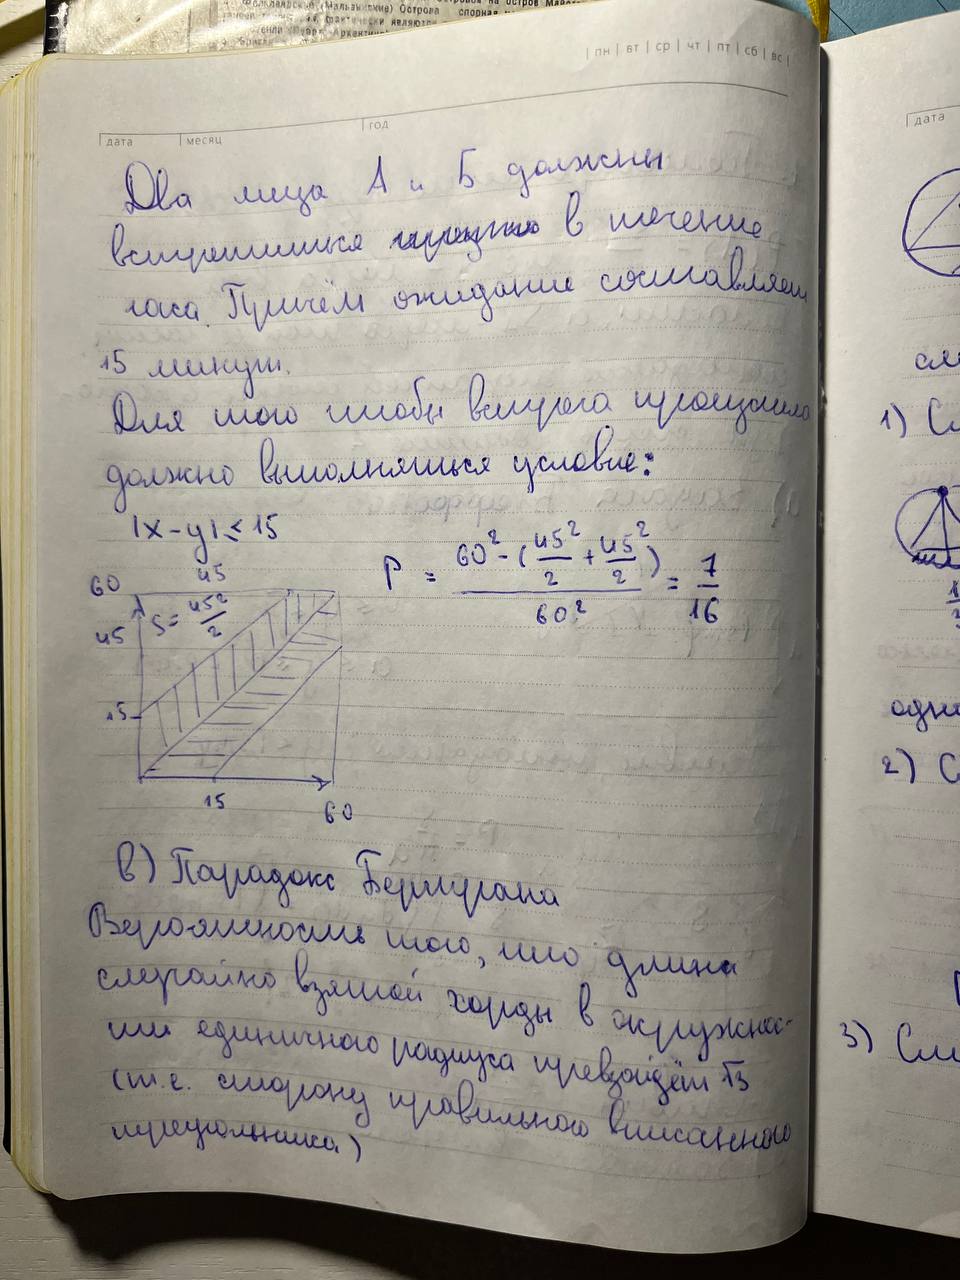 (Мальвинские) Острова спорная
фактически являются
пн | вт | ср | чт | пт | сб | вс |
дата
месяц
год
Два лица А и Б должны
встретиться в течение
часа. Причём ожидание составляет
15 минут.
Для того чтобы встреча произошла
должно выполняться условие:
|x-y| ≤ 15
P = (60² - (45²/2 + 45²/2)) / 60² = 7/16
60
45
45
S = 45²/2
15
15
60
в) Парадокс Бертрана
Вероятность того, что длина
случайно взятой хорды в окружнос-
ти единичного радиуса превзойдёт √3
(т.е. сторону правильного вписанного
треугольника)
дата
1)
одно
2) С
3) Сл